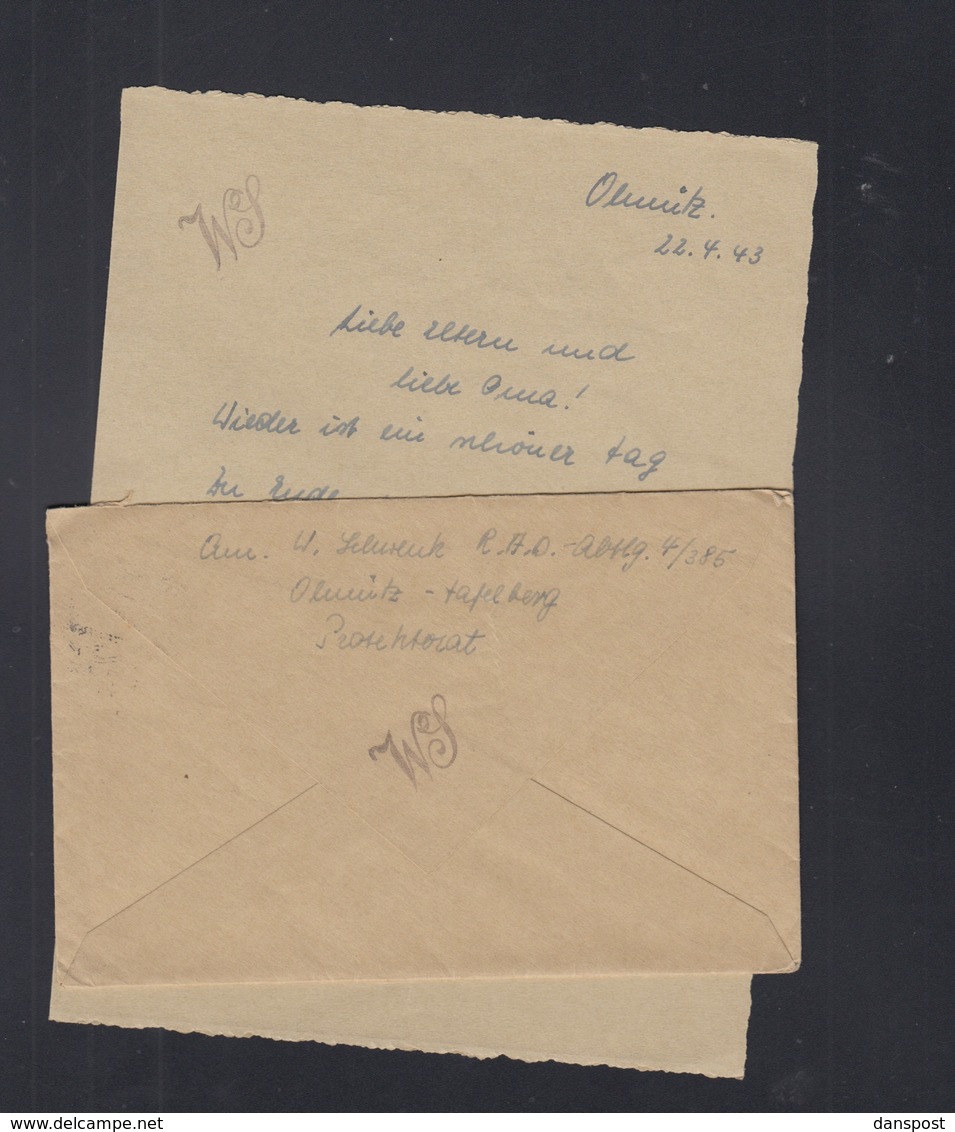 WS
Olmütz.
22.4.43
Liebe Eltern und
liebe Oma!
Wieder ist ein schöner Tag
Zu Ende
Am. W. Schwenk R.A.D.-Abtlg. 4/385
Olmütz - Tafelberg
Protektorat
WS
www.delcampe.net
danspost